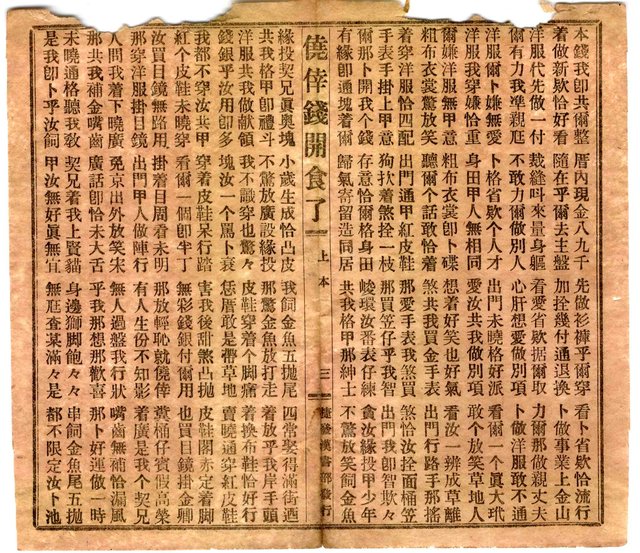 本錢我卽共爾整 厝內現金八九千 先做衫褲乎爾穿 看卜省欵恰流行
着做新欵恰好看 隨在乎爾去主盤 加拴幾付通退換 卜做事業上金山
洋服代先做一付 裁縫叫來量身軀 看愛省欵据爾取 力爾那做親丈夫
爾有力我凖親尫 不敢力爾做別人 心肝想愛做別項 卜做洋服敢不通
洋服爾卜嫌無愛 卜格省欵个人才 出門未曉格好派 看爾一個眞大玳
洋服我穿嫌恰重 身田甲人無相同 愛汝共我做別項 敢个放笑草地人
爾嫌洋服無甲意 粗布衣裳卽卜碟 想着好笑也好氣 看汝一辨成草離
粗布衣裳驚放笑 聽爾个話敢恰着 煞共我買金手表 出門行路手那搖
着穿洋服恰四配 出門通甲紅皮鞋 那愛手表我煞買 煞恰汝拴面桶笠
手表手掛上甲意 狗扒着煞拴一枝 那買笠仔乎我智 出門我卽智欺々
爾那卜開我个錢 存意恰爾格身田 峻環汝番表仔練 貪汝緣投甲少年
有緣卽通塊着爾 歸氣寄留造同居 共我格甲那紳士 不驚放笑飼金魚
僥倖錢開食了 上本 三 捷發漢書部發行
緣投契兄眞奧塊 小歲生成恰凸皮 我飼金魚五拋尾 四常娶得滿街迺
共我格甲卽禮斗 不驚放廣設緣投 那驚金魚放打走 着放乎我岸手頭
洋服共我做献領 我不識穿也驚々 皮鞋穿着不若痛 着換布鞋恰好行
錢銀乎汝用卽多 塊汝一个罵卜衰 恁厝敢是帶草地 賣曉通穿紅皮鞋
我都不穿汝共甲 穿着皮鞋呆行路 害我後甜煞凸拋 皮鞋閣赤定着脚
紅个皮鞋未曉穿 看爾一個卽半丁 無彩錢銀付爾用 也買目鏡掛金卿
汝買目鏡無路用 掛着目周看未明 那放輕恥就僥倖 糞桶仔賓假高榮
那穿洋服掛目鏡 出門甲人做陣行 有人生份不知影 着廣是我个契兄
人問我着下曉廣 免京出外放笑宋 無人過盤我行狀 嘴齒無補恰漏風
那共我補金嘴齒 廣話卽恰未大舌 乎我那想那歡喜 那卜好運做一時
未曉通格聽我敎 契兄着我上賢貓 身邊獅脚飽々々 串飼金魚尾五拋
是我卽卜乎汝飼 甲汝無好眞無宜 無尫查某滿々是 都不限定汝卜池